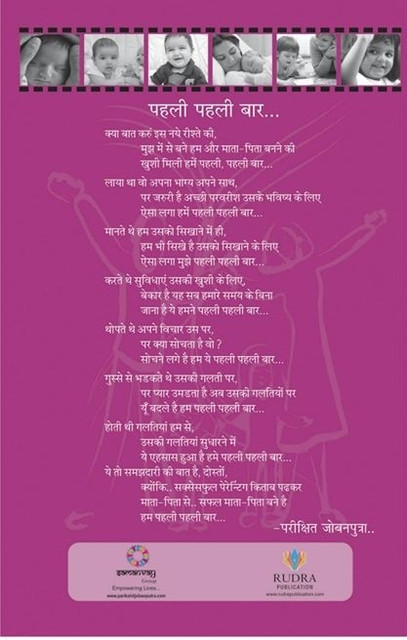 पहली पहली बार...
क्या बात करुं इस नये रीश्ते की,
मुझ में से बने हम और माता-पिता बनने की
खुशी मिली हमें पहली, पहली बार...
लाया था वो अपना भाग्य अपने साथ,
पर जरुरी है अच्छी परवरीश उसके भविष्य के लिए
ऐसा लगा हमें पहली पहली बार...
मानते थे हम उसको सिखाने में ही,
हम भी सिखे है उसको सिखाने के लिए
ऐसा लगा मुझे पहली पहली बार...
करते थे सुविधाएं उसकी खुशी के लिए,
बेकार है यह सब हमारे समय के बिना
जाना है ये हमने पहली पहली बार...
थोपते थे अपने विचार उस पर,
पर क्या सोचता है वो ?
सोचने लगे है हम ये पहली पहली बार...
गुस्से से भडकते थे उसकी गलती पर,
पर प्यार उमडता है अब उसकी गलतियों पर
यूँ बदले है हम पहली पहली बार...
होती थी गलतियां हम से,
उसकी गलतियां सुधारने में
ये एहसास हुआ है हमे पहली पहली बार...
ये तो समझदारी की बात है, दोस्तों,
क्योंकि.. सक्सेसफुल पेरेन्टिंग किताब पढकर
माता-पिता से.. सफल माता-पिता बने है
हम पहली पहली बार...
-परीक्षित जोबनपुत्रा..
samanvay
Group
Empowering Lives...
www.parikshitjobanputra.com
RUDRA
PUBLICATION
www.rudrapublication.com